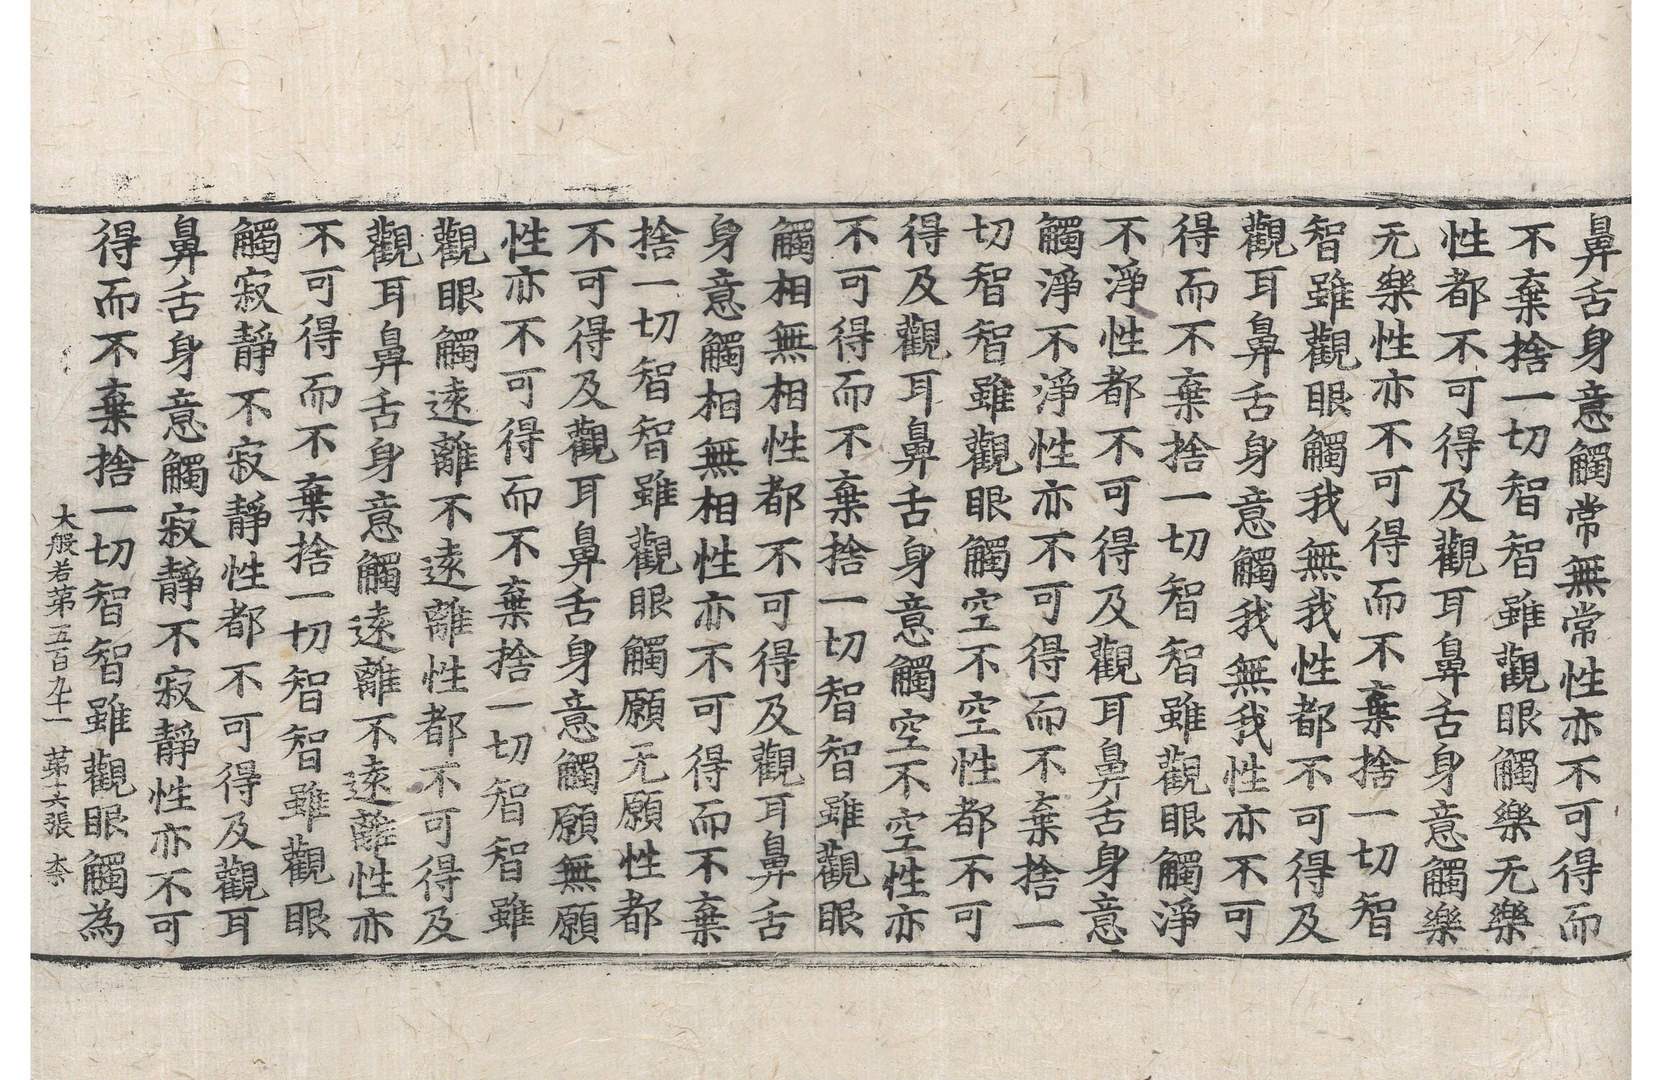 鼻舌身意觸常無常性亦不可得而
不棄捨一切智智雖觀眼觸樂无樂
性都不可得及觀耳鼻舌身意觸樂
无樂性亦不可得而不棄捨一切智
智雖觀眼觸我無我性都不可得及
觀耳鼻舌身意觸我無我性亦不可
得而不棄捨一切智智雖觀眼觸淨
不淨性都不可得及觀耳鼻舌身意
觸淨不淨性亦不可得而不棄捨一
切智智雖觀眼觸空不空性都不可
得及觀耳鼻舌身意觸空不空性亦
不可得而不棄捨一切智智雖觀眼
觸相無相性都不可得及觀耳鼻舌
身意觸相無相性亦不可得而不棄
捨一切智智雖觀眼觸願无願性都
不可得及觀耳鼻舌身意觸願無願
性亦不可得而不棄捨一切智智雖
觀眼觸遠離不遠離性都不可得及
觀耳鼻舌身意觸遠離不遠離性亦
不可得而不棄捨一切智智雖觀眼
觸寂靜不寂靜性都不可得及觀耳
鼻舌身意觸寂靜不寂靜性亦不可
得而不棄捨一切智智雖觀眼觸為
大般若第五百九十一 第十六張 柰